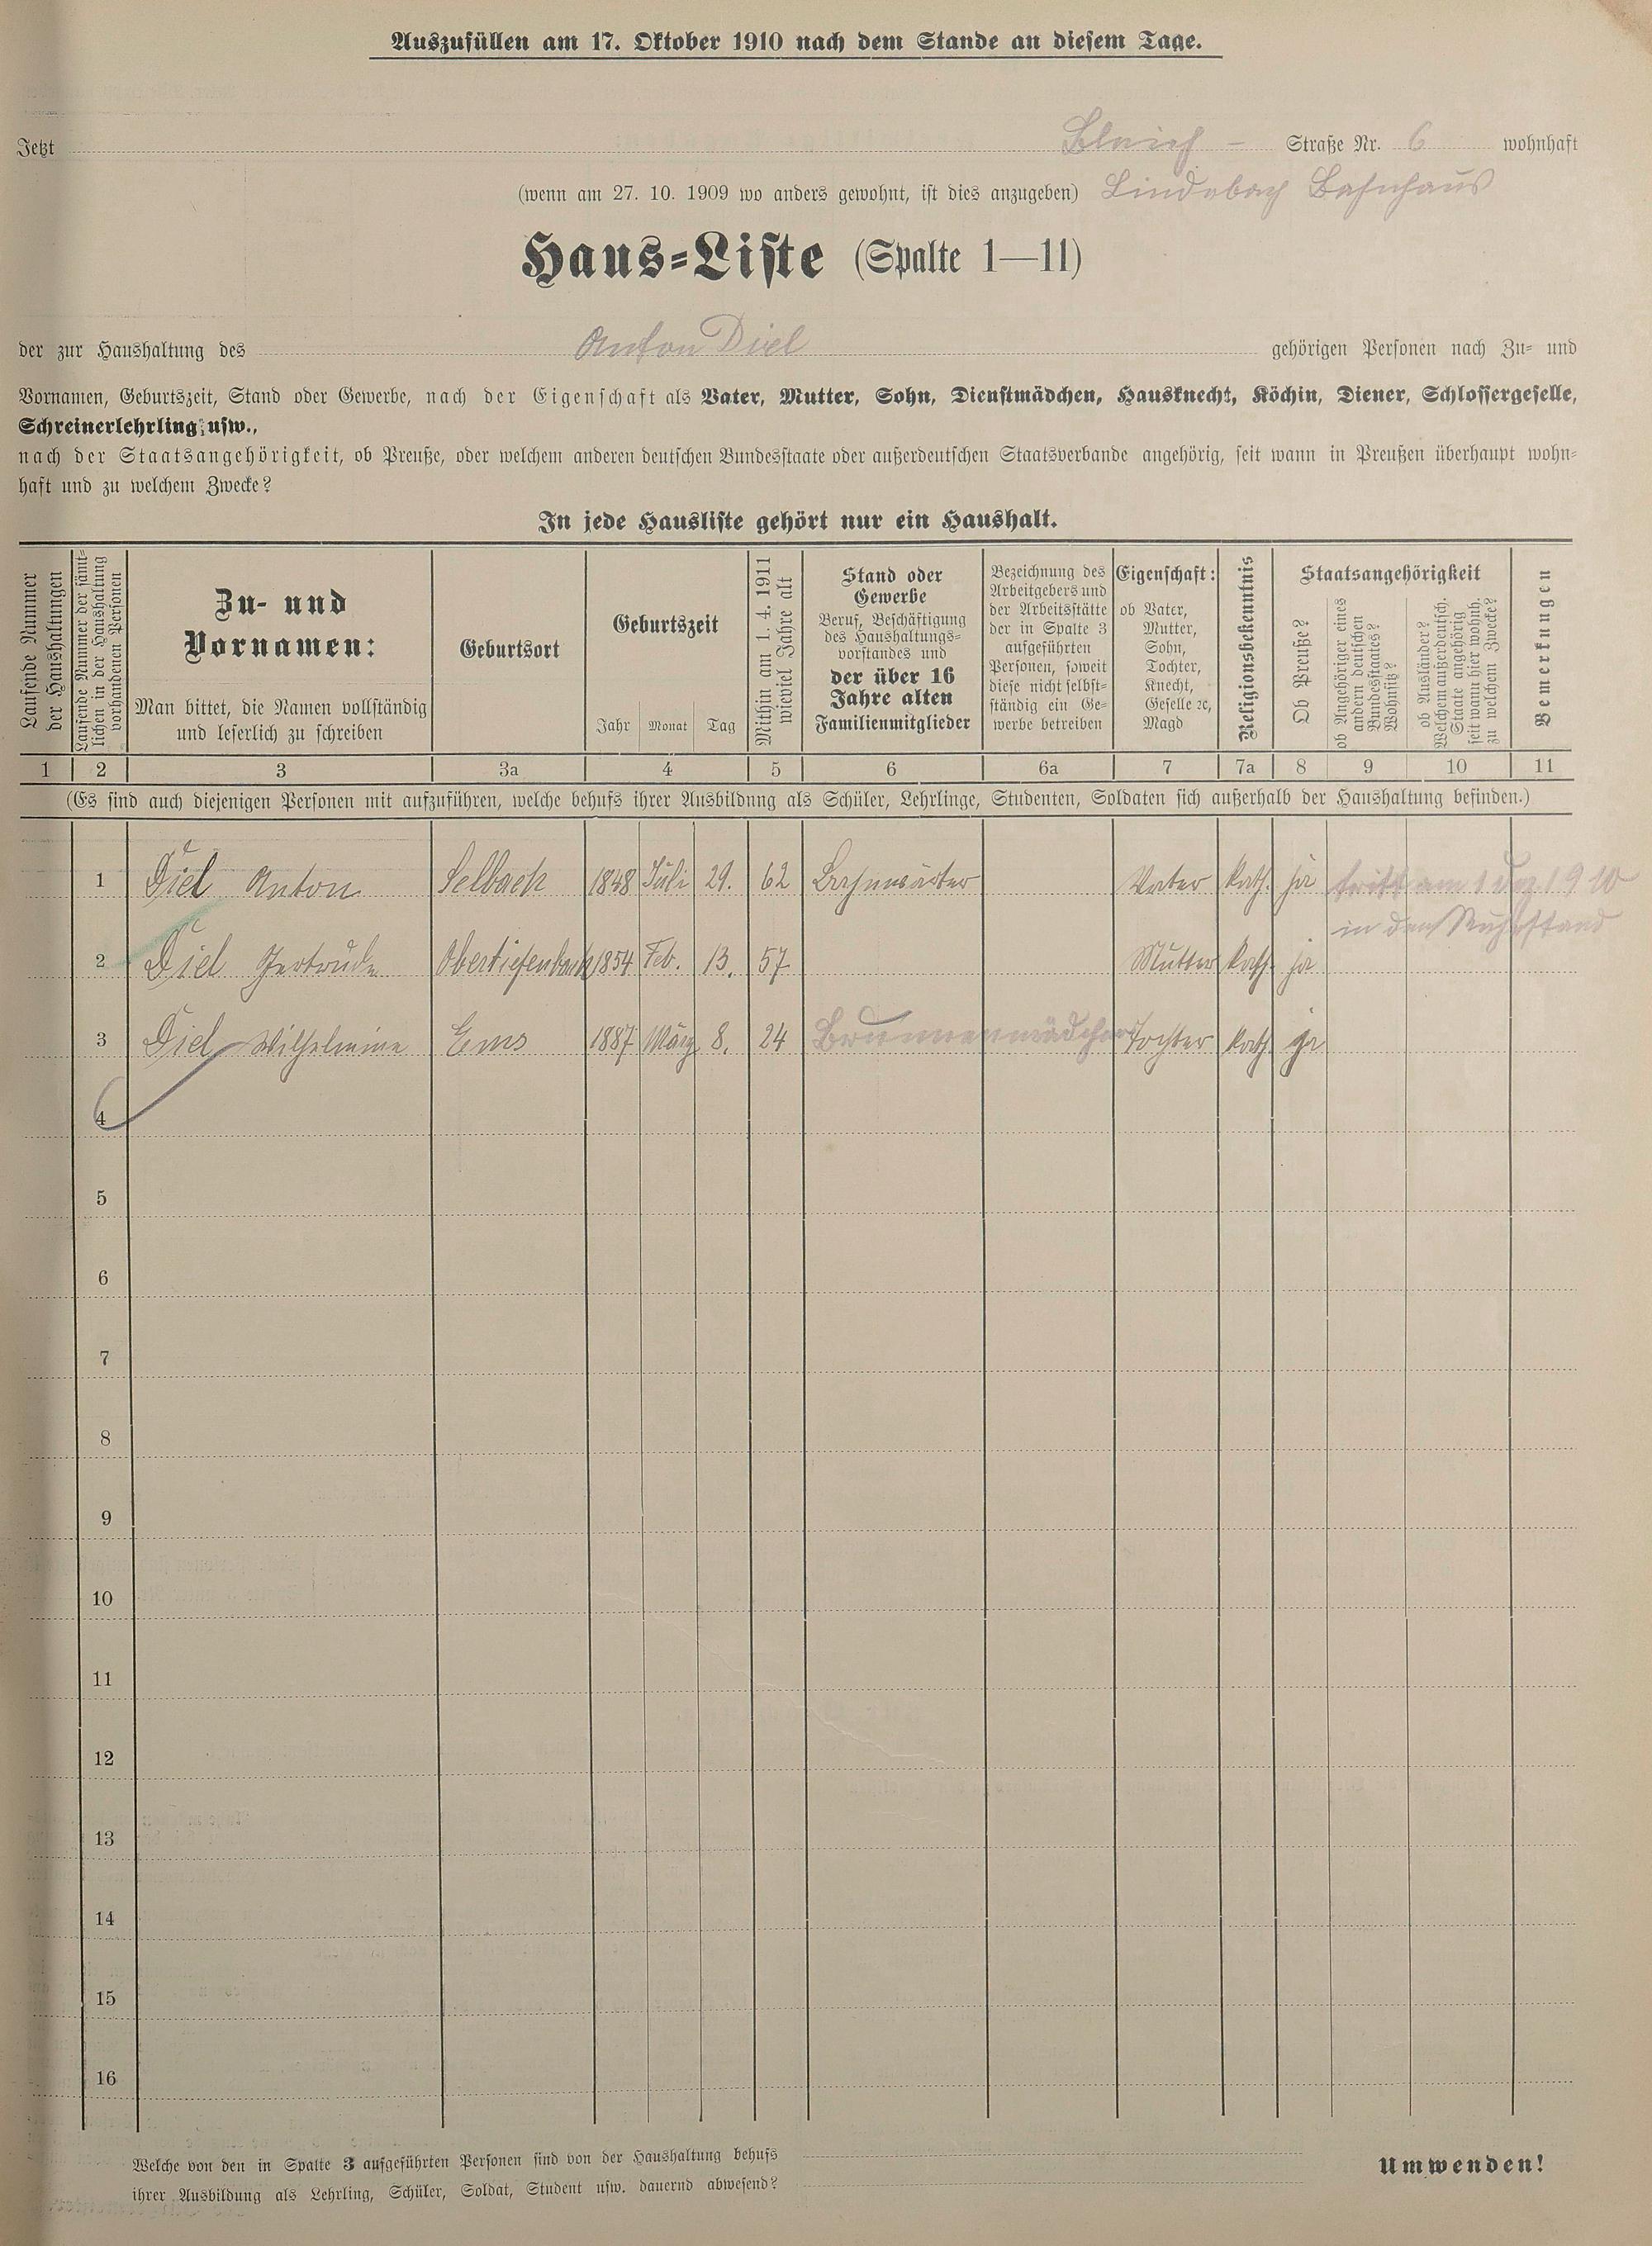 Auszufüllen am 17. Oktober 1910 nach dem Stande an diesem Tage.
Jetzt Bleich - Straße Nr. 6 wohnhaft
(wenn am 27. 10. 1909 wo anders gewohnt, ist dies anzugeben) Lindebach Bahnhaus
Haus-Liste (Spalte 1—11)
der zur Haushaltung des Anton Diel gehörigen Personen nach Zu- und
Vornamen, Geburtszeit, Stand oder Gewerbe, nach der Eigenschaft als Vater, Mutter, Sohn, Dienstmädchen, Hausknecht, Köchin, Diener, Schlossergeselle,
Schreinerlehrling usw.,
nach der Staatsangehörigkeit, ob Preuße, oder welchem anderen deutschen Bundesstaate oder außerdeutschen Staatsverbande angehörig, seit wann in Preußen überhaupt wohn-
haft und zu welchem Zwecke?
In jede Hausliste gehört nur ein Haushalt.
Laufende Nummer
der Haushaltungen
Laufende Nummer der sämt-
lichen in der Haushaltung
vorhandenen Personen
Zu- und
Vornamen:
Man bittet, die Namen vollständig
und leserlich zu schreiben
Geburtsort
Geburtszeit
Jahr Monat Tag
Mithin am 1. 4. 1911
wieviel Jahre alt
Stand oder
Gewerbe
Beruf, Beschäftigung
des Haushaltungs-
vorstandes und
der über 16
Jahre alten
Familienmitglieder
Bezeichnung des
Arbeitgebers und
der Arbeitsstätte
der in Spalte 3
aufgeführten
Personen, soweit
diese nicht selbst-
ständig ein Ge-
werbe betreiben
Eigenschaft:
ob Vater,
Mutter,
Sohn,
Tochter,
Knecht,
Geselle ꝛc,
Magd
Religionsbekenntnis
Staatsangehörigkeit
Ob Preuße?
ob Angehöriger eines
andern deutschen
Bundesstaates?
Wohnsitz?
ob Ausländer?
Welchem außerdeutsch.
Staate angehörig
seit wann hier wohnh.
zu welchem Zwecke?
Bemerkungen
1 2 3 3a 4 5 6 6a 7 7a 8 9 10 11
(Es sind auch diejenigen Personen mit aufzuführen, welche behufs ihrer Ausbildung als Schüler, Lehrlinge, Studenten, Soldaten sich außerhalb der Haushaltung befinden.)
1 Diel Anton Selbach 1848 Juli 29. 62 Bahnwärter Vater Kath. ja tritt am 1 Dez 1910
in den Ruhestand
2 Diel Gertrude Obertiefenbach 1854 Feb. 13. 57 Mutter Kath. ja
3 Diel Wilhelmine Ems 1887 März 8. 24 Brunnenmädchen Tochter Kath. ja
4
5
6
7
8
9
10
11
12
13
14
15
16
Welche von den in Spalte 3 aufgeführten Personen sind von der Haushaltung behufs
ihrer Ausbildung als Lehrling, Schüler, Soldat, Student usw. dauernd abwesend?
Umwenden!